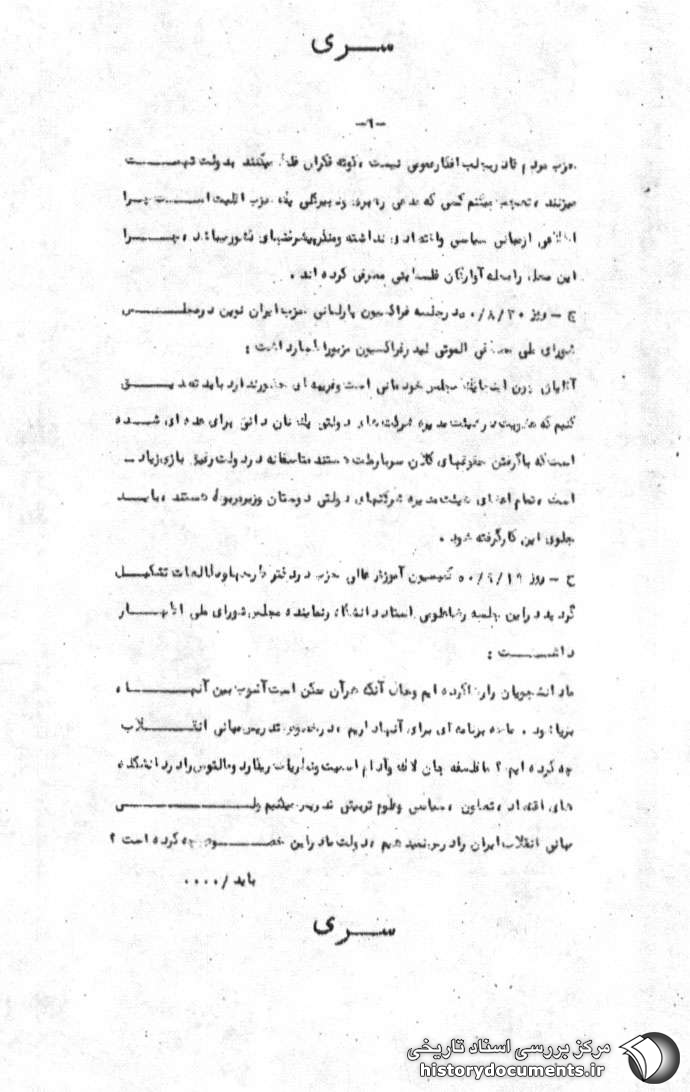 سری
-٦-
حزب مردم قادر بجلب افکار عمومی نیست، کوته فکران میکنند بدولت تهمت
میزنند، تعجب میکنم کسی که مدعی رهبری و دبیرکلی یک حزب اقلیت است چرا
اطلاعی از مبانی سیاسی و اقتصادی نداشته و منکر پیشرفتهای کشور میباشد، چرا
این محل را محله آوارگان فلسطینی معرفی کرده اند.
ج - روز ۵۰/۸/۳۰ در جلسه فراکسیون پارلمانی حزب ایران نوین در مجلس
شورای ملی مصطفی الموتی لیدر فراکسیون مزبور اظهار داشت:
آقایان چون اینجا یک مجلس خودمانی است و غریبه ای حضور ندارد باید تصدیق
کنیم که عضویت در هیئت مدیره شرکت های دولتی یک نان دانی برای عده ای شده
است که با گرفتن حقوقهای کلان سربار ملت هستند متاسفانه در دولت رفیق بازی زیاد -
است، تمام اعضای هیئت مدیره شرکتهای دولتی دوستان وزیر مربوط هستند، باید
جلوی این کار گرفته شود.
ح - روز ۵۰/۹/۱۹ کمیسیون آموزش عالی حزب در دفتر طرحها و مطالعات تشکیل
گردید در این جلسه استاد دانشگاه و نماینده مجلس شورای ملی اظهار
داشت:
ما دانشجویان را رها کرده ایم و حال آنکه هر آن ممکن است آشوب بین آنها،
برپا شود. ما چه برنامه ای برای آنها داریم، در خصوص تدریس مبانی انقلاب
چه کرده ایم؟ ما فلسفه جان لاک و آدام اسمیت و نظریات ریکاردو و مالتوس را در دانشکده
های اقتصاد، تعاون، سیاسی و علوم تربیتی تدریس میکنیم ولی
مبانی انقلاب ایران را درس نمیدهیم، دولت ما در این خصوص چه کرده است؟
باید /....
سری
مرکز بررسی اسناد تاریخی
historydocuments.ir